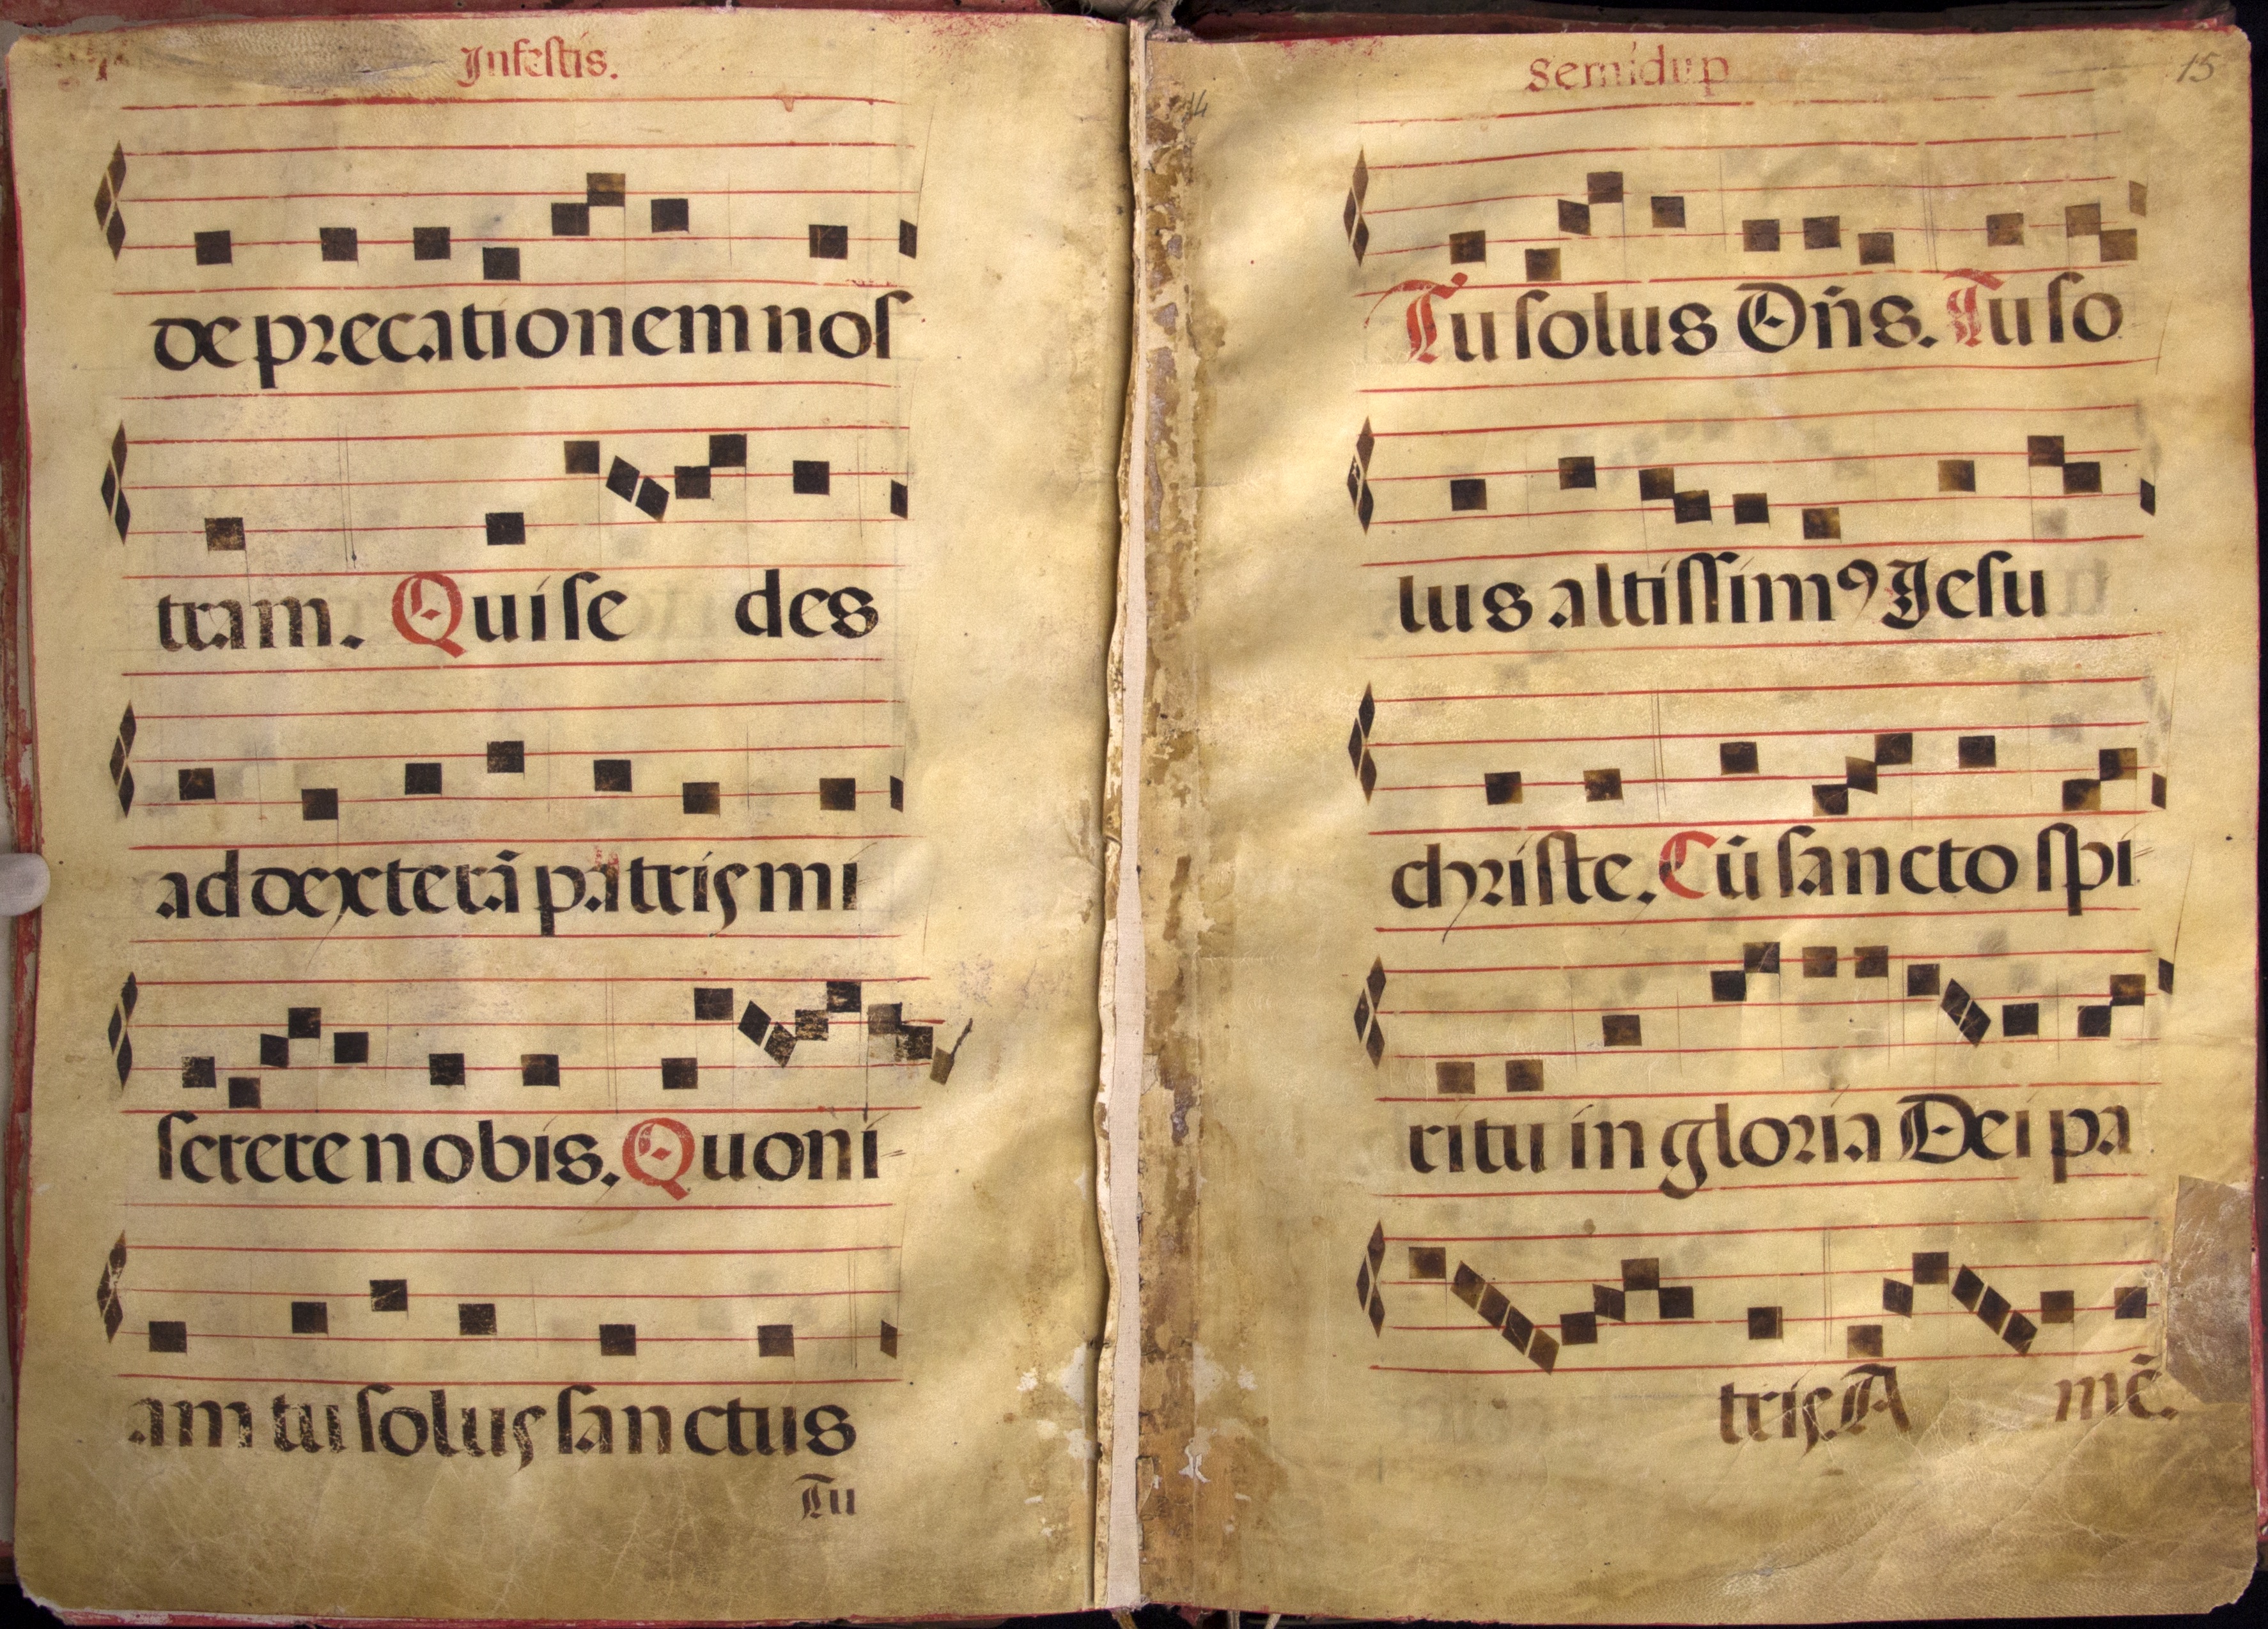 In festis.
de precationem nos
tram. Qui se des
ad dexterā patris mi
serere nobis. Quoni-
am tu solus sanctus
Tu
Semidup
15
14
Tu solus Dñs. Tu so
lus altissimꝰ Jesu
christe. Cū sancto spi-
ritu in gloria Dei pa
tris. A mē.